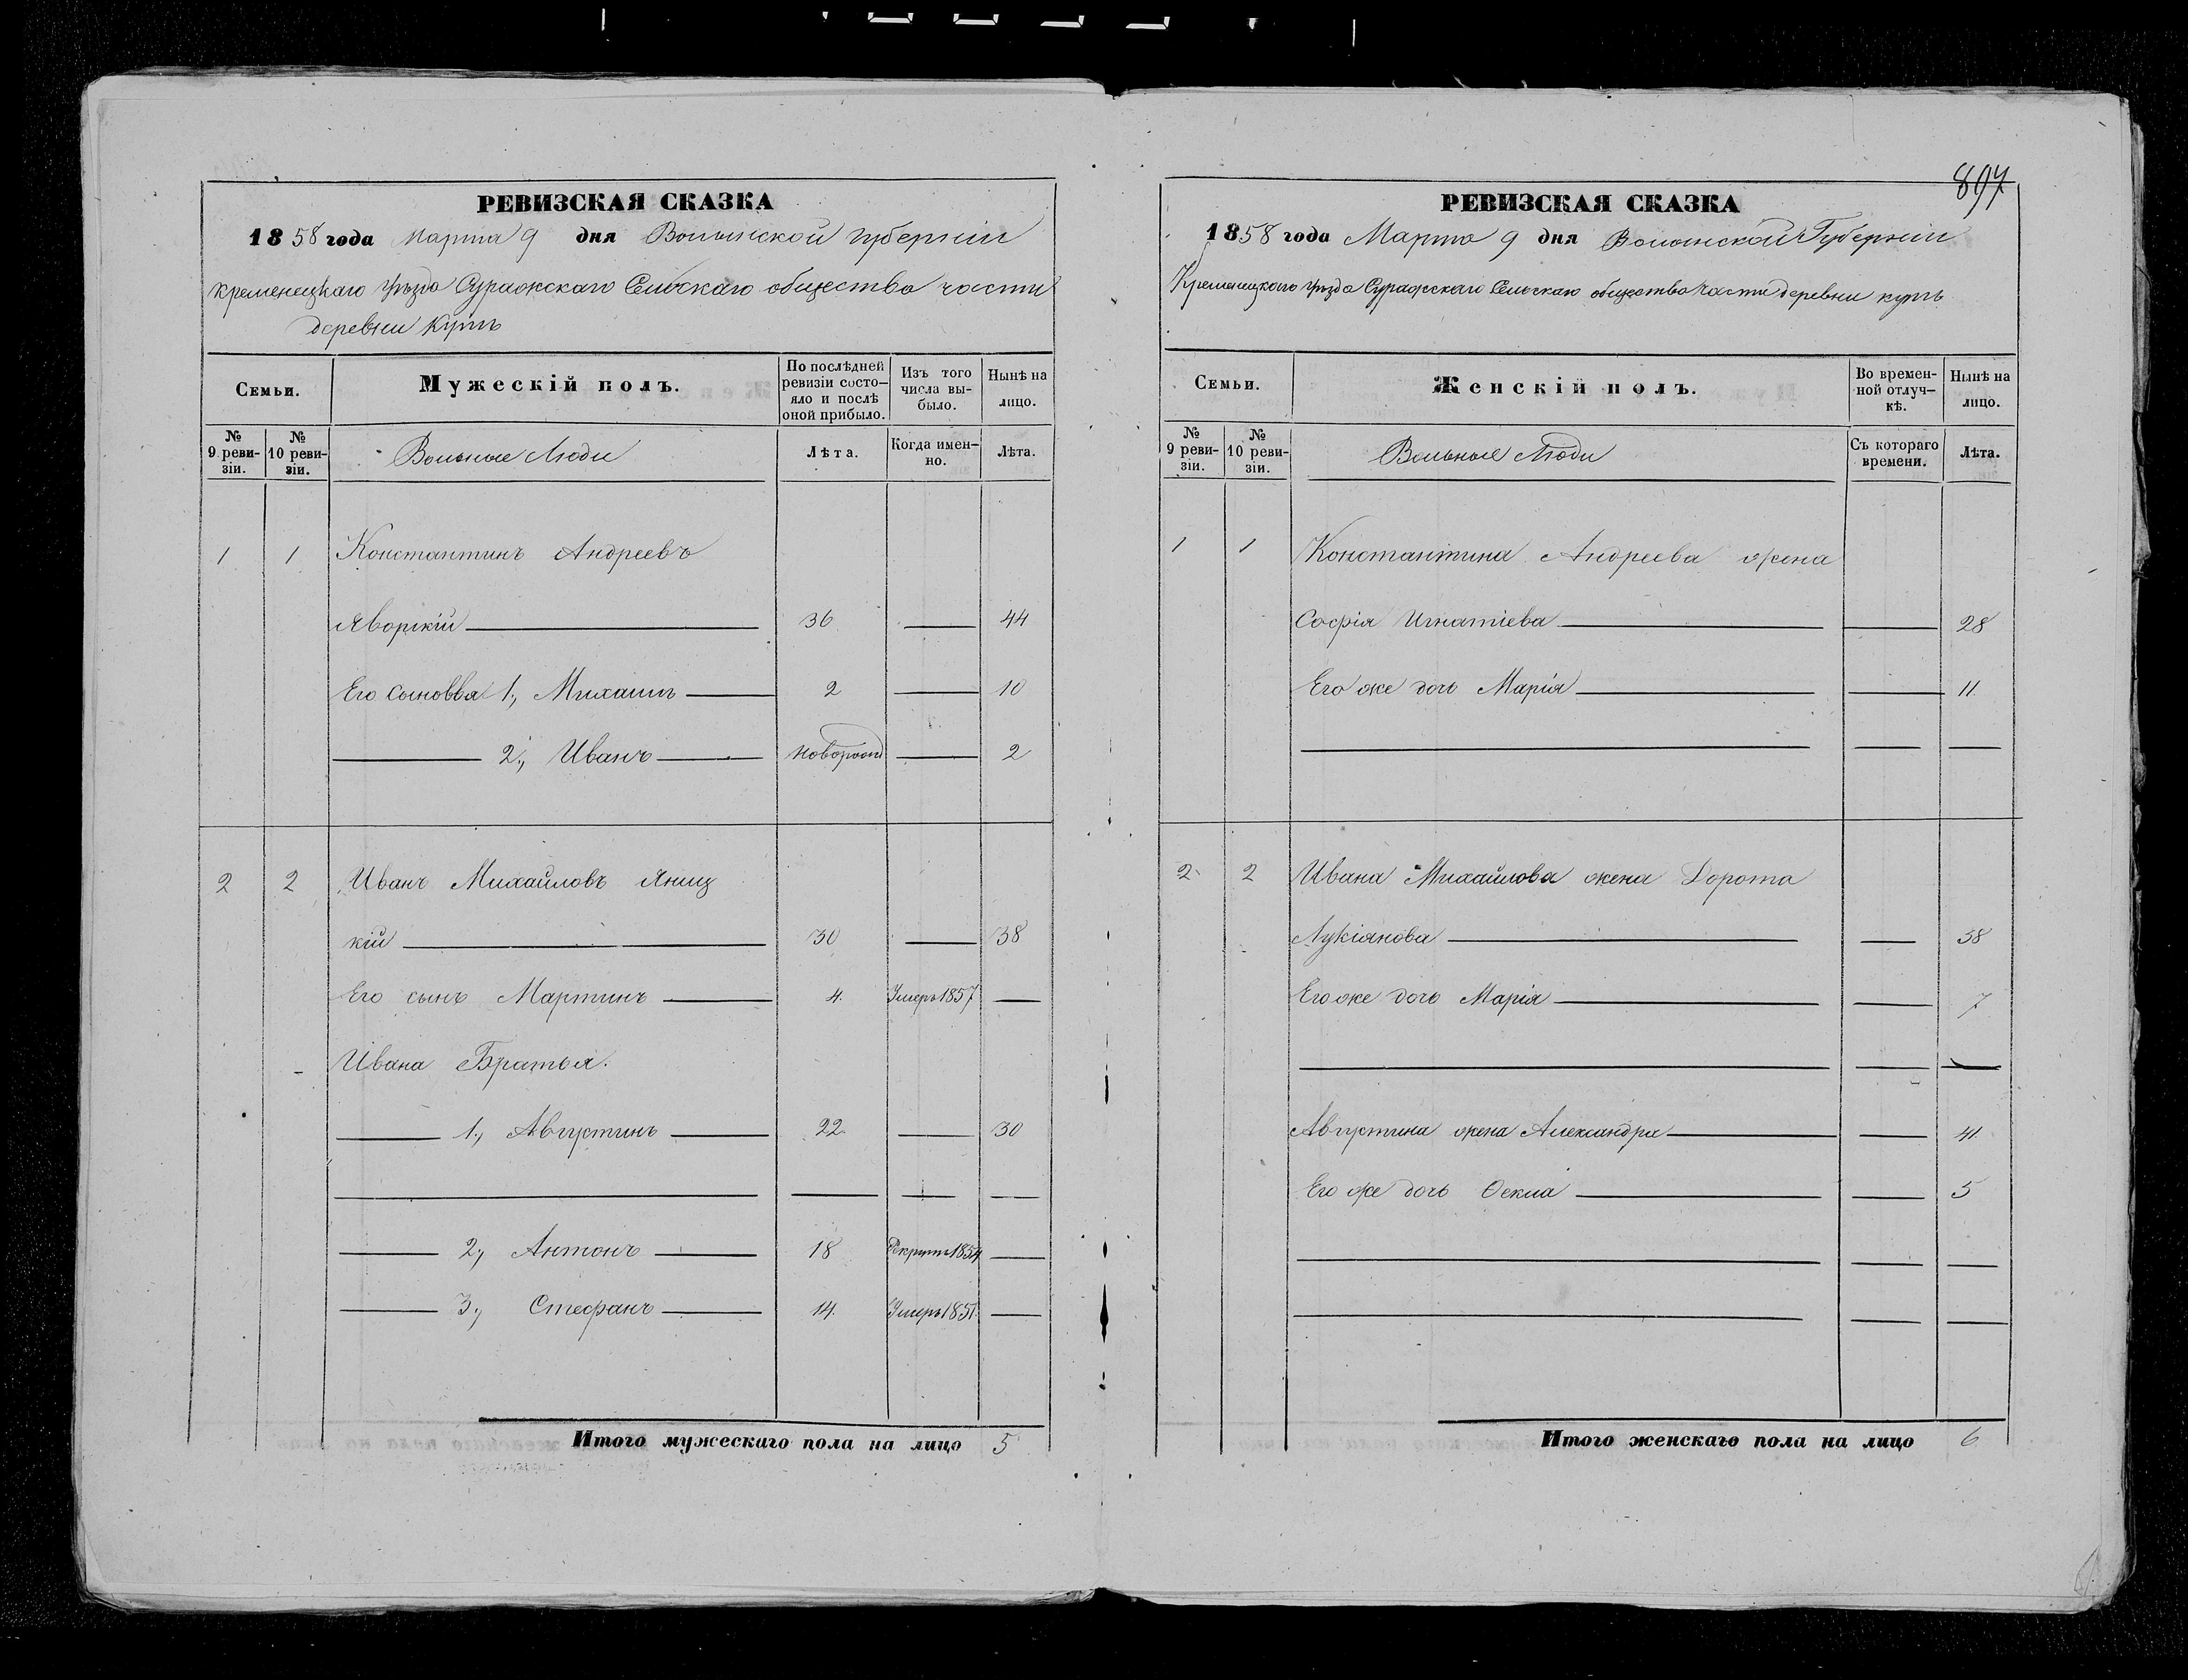 РЕВИЗСКАЯ СКАЗКА
1858 года Марта 9 дня Волынской губерніи
кременецкаго уѣзда Суражскаго Сельскаго общества части
деревни Кутъ
Семьи.
Мужескій полъ.
По послѣдней ревизіи состояло и послѣ оной прибыло.
Изъ того числа выбыло.
Нынѣ на лицо.
№ 9 ревизіи.
№ 10 ревизіи.
Вольные Люди
Лѣта.
Когда именно.
Лѣта.
1 1 Константинъ Андреевъ
Яворскій 36 — 44
Его сыновья 1, Михаилъ 2 — 10
— 2, Иванъ — новорожд — 2
2 2 Иванъ Михайловъ Яниц
кій 30 — 38
Его сынъ Мартинъ — 4. Умеръ 1857 —
Ивана Братья.
— 1, Августинъ — 22 — 30
— 2, Антонъ — 18 Рекрутъ 1854 —
— 3, Стефанъ — 14. Умеръ 1851 —
Итого мужескаго пола на лицо 5
897
РЕВИЗСКАЯ СКАЗКА
1858 года Марта 9 дня Волынской Губерніи
Кременецкаго уѣзда Суражскаго Сельскаго общества части деревни кутъ
Семьи.
Женскій полъ.
Во временной отлучкѣ.
Нынѣ на лицо.
№ 9 ревизіи.
№ 10 ревизіи.
Вольные Люди
Съ котораго времени.
Лѣта.
1 1 Константина Андреева жена
Софія Игнатіева — 28
Его же дочь Марія — 11
2 2 Ивана Михайлова жена Дорота
Лукіянова — 38
Его же дочь Марія — 7
Августина жена Александра — 41
Его же дочь Ѳекла — 5
Итого женскаго пола на лицо 6